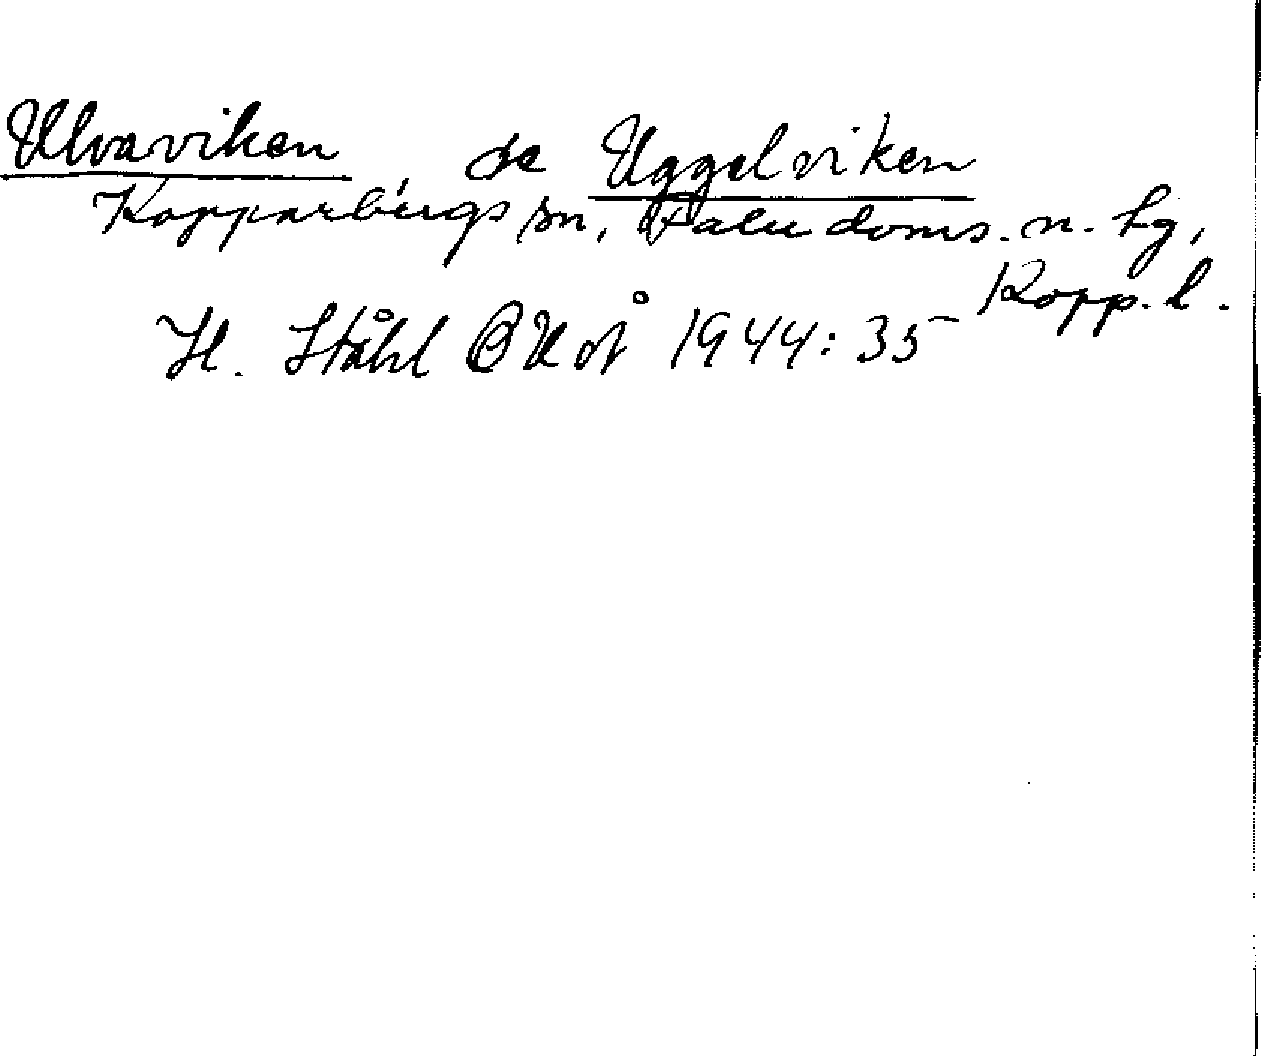 Ulvaviken, se Uggelviken
Kopparbergs sn, Falu doms. n. hg,
Kopp. l.
H. Ståhl 1944:35